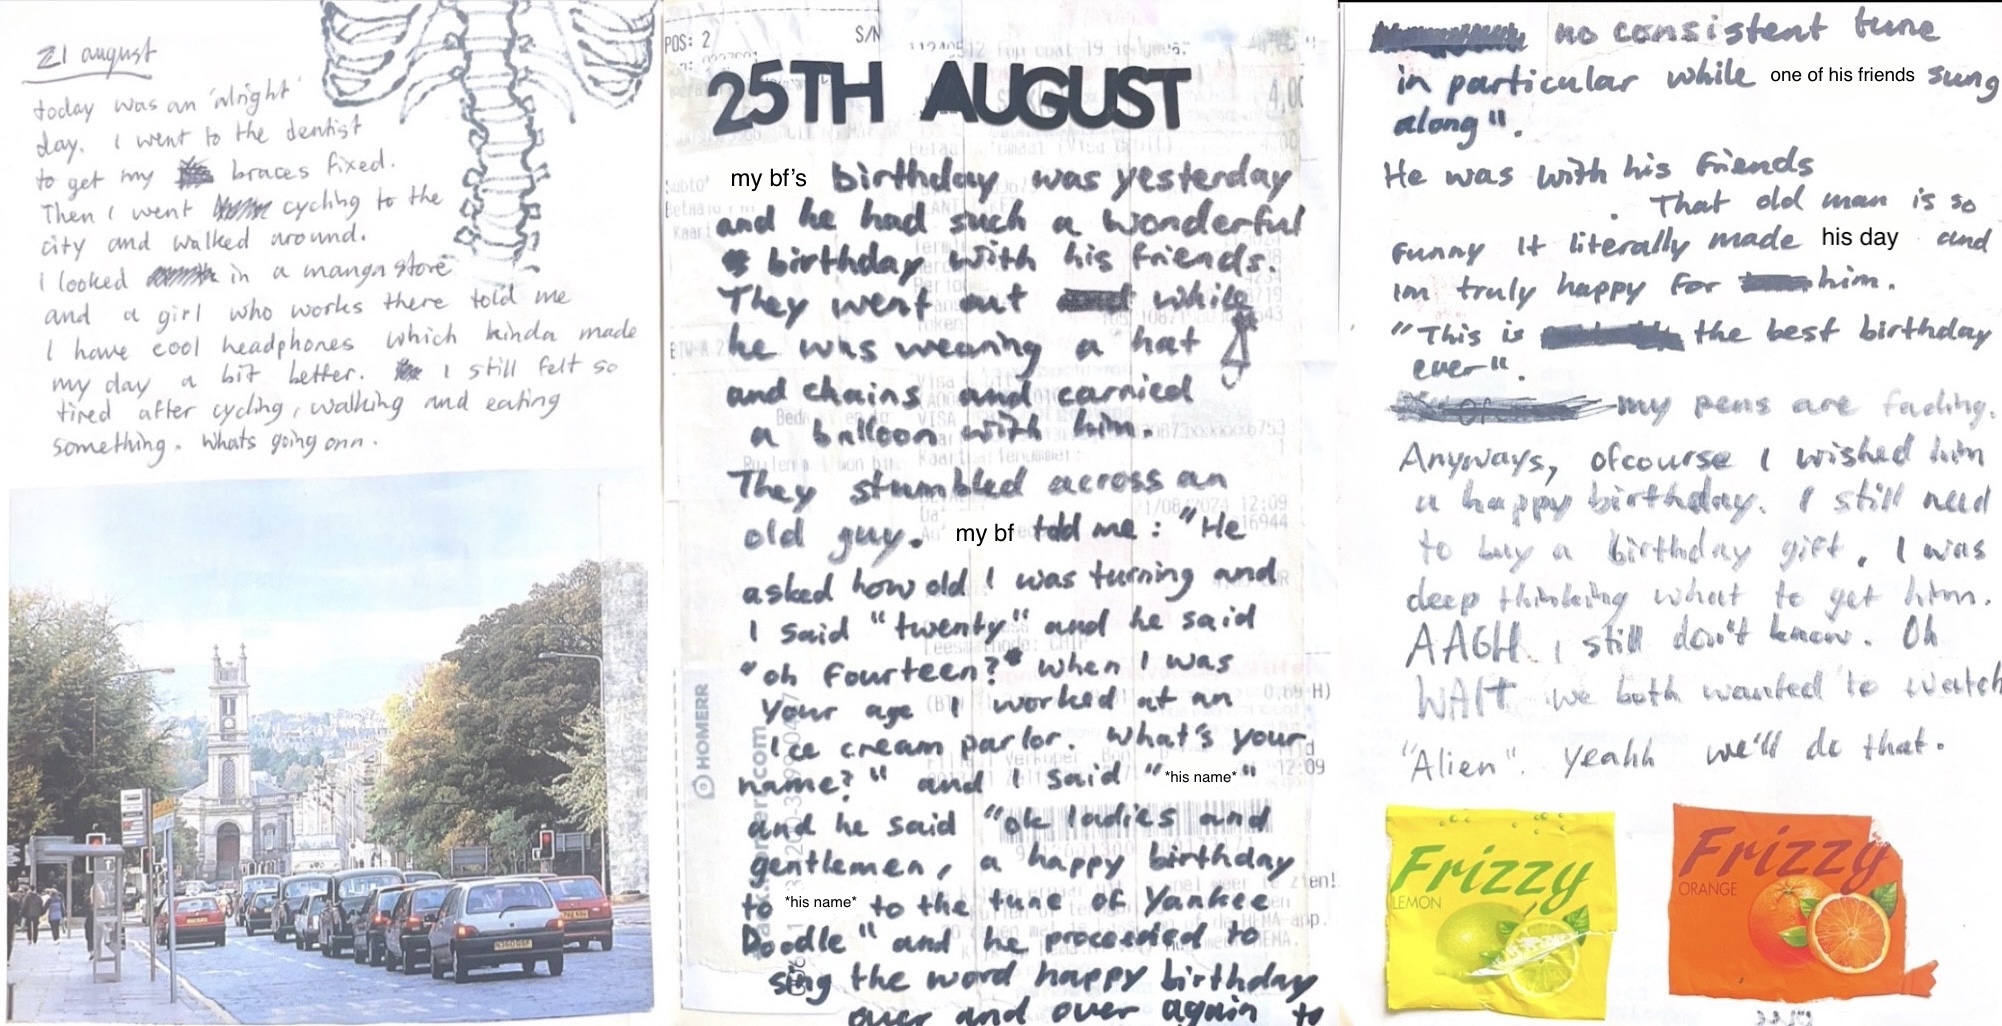 21 august
today was an 'alright'
day. I went to the dentist
to get my braces fixed.
Then I went cycling to the
city and walked around.
I looked in a manga store
and a girl who works there told me
I have cool headphones which kinda made
my day a bit better. I still felt so
tired after cycling, walking and eating
something. Whats going onn.
POS: 2
S/N
25TH AUGUST
my bf's birthday was yesterday
and he had such a wonderful
birthday with his friends.
They went out while
he was wearing a hat
and chains and carried
a balloon with him.
They stumbled across an
old guy. my bf told me: "He
asked how old I was turning and
I said "twenty" and he said
"oh fourteen?" when I was
your age I worked at an
Ice cream parlor. What's your
name?" and I said "*his name*"
and he said "ok ladies and
gentlemen, a happy birthday
to *his name* to the tune of Yankee
Doodle" and he proceeded to
sing the word happy birthday
over and over again to
HOMERR
12:09
no consistent tune
in particular while one of his friends sung
along".
He was with his friends
. That old man is so
funny It literally made his day and
im truly happy for him.
"This is the best birthday
ever".
my pens are fading.
Anyways, ofcourse I wished him
a happy birthday. I still need
to buy a birthday gift. I was
deep thinking what to get him.
AAGH. I still don't know. Oh
WAIT we both wanted to watch
"Alien". Yeahh we'll do that.
Frizzy
LEMON
Frizzy
ORANGE